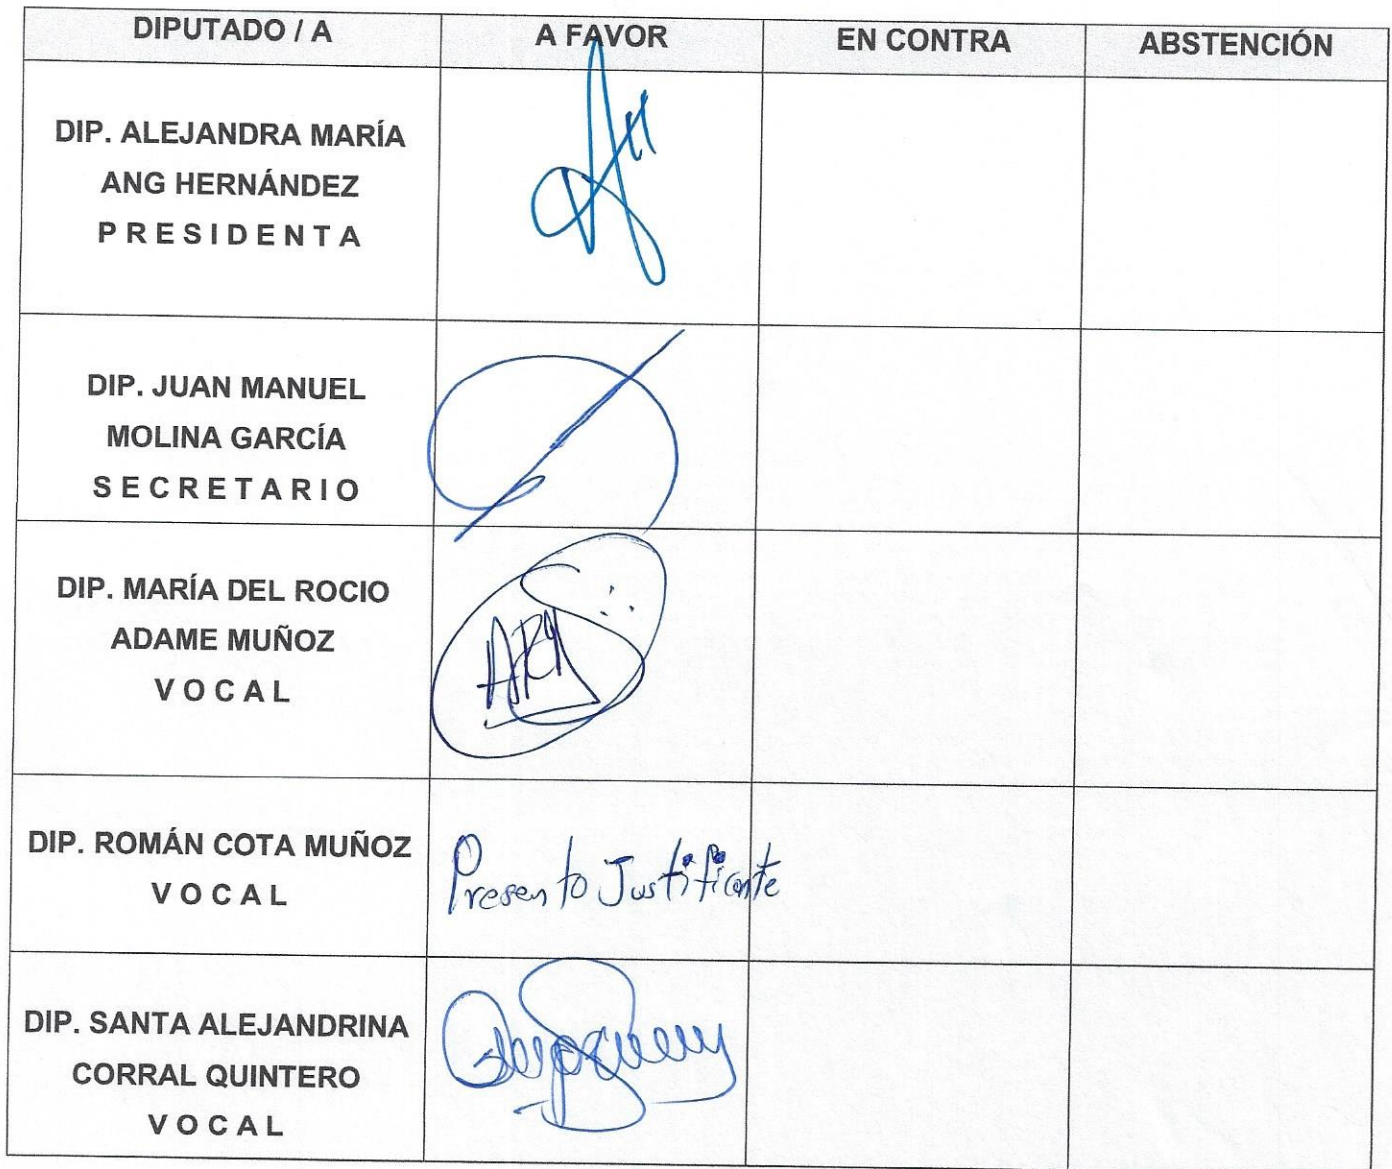 DIPUTADO / A
A FAVOR
EN CONTRA
ABSTENCIÓN
DIP. ALEJANDRA MARÍA
ANG HERNÁNDEZ
PRESIDENTA
DIP. JUAN MANUEL
MOLINA GARCÍA
SECRETARIO
DIP. MARÍA DEL ROCIO
ADAME MUÑOZ
VOCAL
DIP. ROMÁN COTA MUÑOZ
VOCAL
Presento Justificante
DIP. SANTA ALEJANDRINA
CORRAL QUINTERO
VOCAL